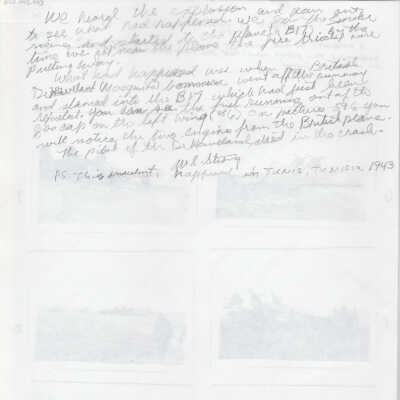 We heard the explosion and ran out
to see what had happened. We saw the smoke
and started to the plane (B17). By the
time we got near the plane the fire trucks were
pulling away.
What had happened was when British
DeHavilland Mosquito bomber went off the runway
and slamed into the B17 which had just been
You can see the fuel running out of the
gas cap on the left wing. (#6) On picture 5+6 you
will notice the two engines from the British plane.
The pilot of the DeHaviland died in the crash.
W E Strong
PS. This incident happened in TUNIS, TUNISIA 1943